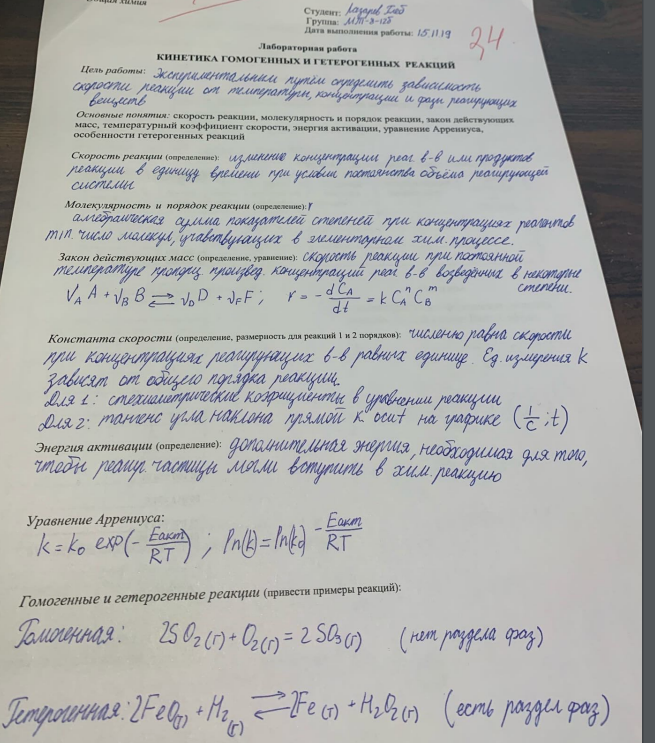 химия
Студент: Лазарев Глеб
Группа: МТ-8-12б
Дата выполнения работы: 15.11.19
24
Лабораторная работа
КИНЕТИКА ГОМОГЕННЫХ И ГЕТЕРОГЕННЫХ РЕАКЦИЙ
Цель работы: Экспериментальным путём определить зависимость
скорости реакции от температуры, концентрации и фазы реагирующих
веществ
Основные понятия: скорость реакции, молекулярность и порядок реакции, закон действующих
масс, температурный коэффициент скорости, энергия активации, уравнение Аррениуса,
особенности гетерогенных реакций
Скорость реакции (определение): изменение концентрации реаг. в-в или продуктов
реакции в единицу времени при условии постоянства объёма реагирующей
системы
Молекулярность и порядок реакции (определение):
алгебраическая сумма показателей степеней при концентрациях реагентов
min. число молекул, учавствующих в элементарном хим. процессе.
Закон действующих масс (определение, уравнение): скорость реакции при постоянной
температуре пропорц. произвед. концентраций реаг. в-в возведённых в некоторые
степени.
νA A + νB B ⇄ νD D + νF F; r = - dCA/dt = k CA^n CB^m
Константа скорости (определение, размерность для реакций 1 и 2 порядков): численно равна скорости
при концентрациях реагирующих в-в равных единице. Ед. измерения k
зависят от общего порядка реакции.
Для 1: стехиометрические коэфициенты в уравнении реакции
Для 2: тангенс угла наклона прямой к оси t на графике (1/C; t)
Энергия активации (определение): дополнительная энергия, необходимая для того,
чтобы реагир. частицы могли вступить в хим. реакцию
Уравнение Аррениуса:
k = k0 exp(- Eакт/RT); ln(k) = ln(k0) - Eакт/RT
Гомогенные и гетерогенные реакции (привести примеры реакций):
Гомогенная: 2SO2(г) + O2(г) = 2SO3(г) (нет раздела фаз)
Гетерогенная: 2FeO(т) + H2(г) ⇄ 2Fe(т) + H2O2(г) (есть раздел фаз)